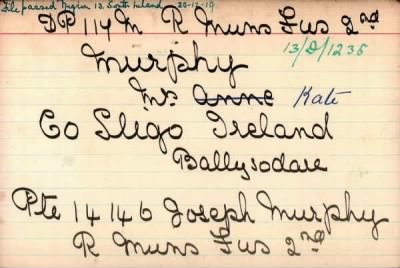 File passed 13 South Ireland 22-12-19
DP 114 M R Muns Fus 2nd
13/D/1235
Murphy
Mrs Anne Kate
Co Sligo Ireland
Ballysodare
Pte 14146 Joseph Murphy
R Muns Fus 2nd